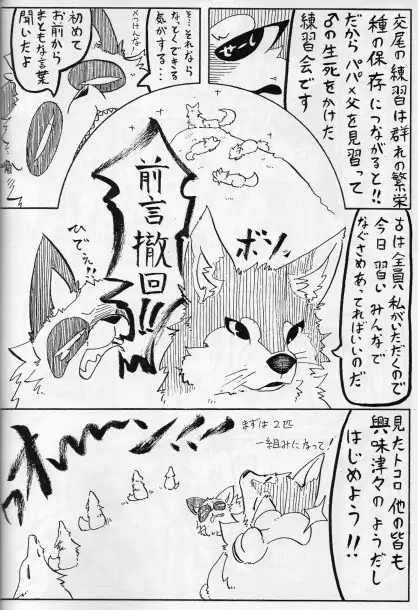 交尾の練習は群れの繁栄
種の保存につながると!!
だから パパ×父を見習って
♂の生死をかけた
練習会です
せーし
そ…それなら
なっとくできる
気がする…
めっけんな
初めて
お前から
まともな言葉
聞いたよ
♂は全員 私がいただくので
今日 習い みんなで
なぐさめあってればいいのだ
ボソ
前言撤回!!
ひでぇ!!
見たトコロ 他の皆も
興味津々のようだし
はじめよう!!
まずは2匹
一組みになって!
オーーン!!!